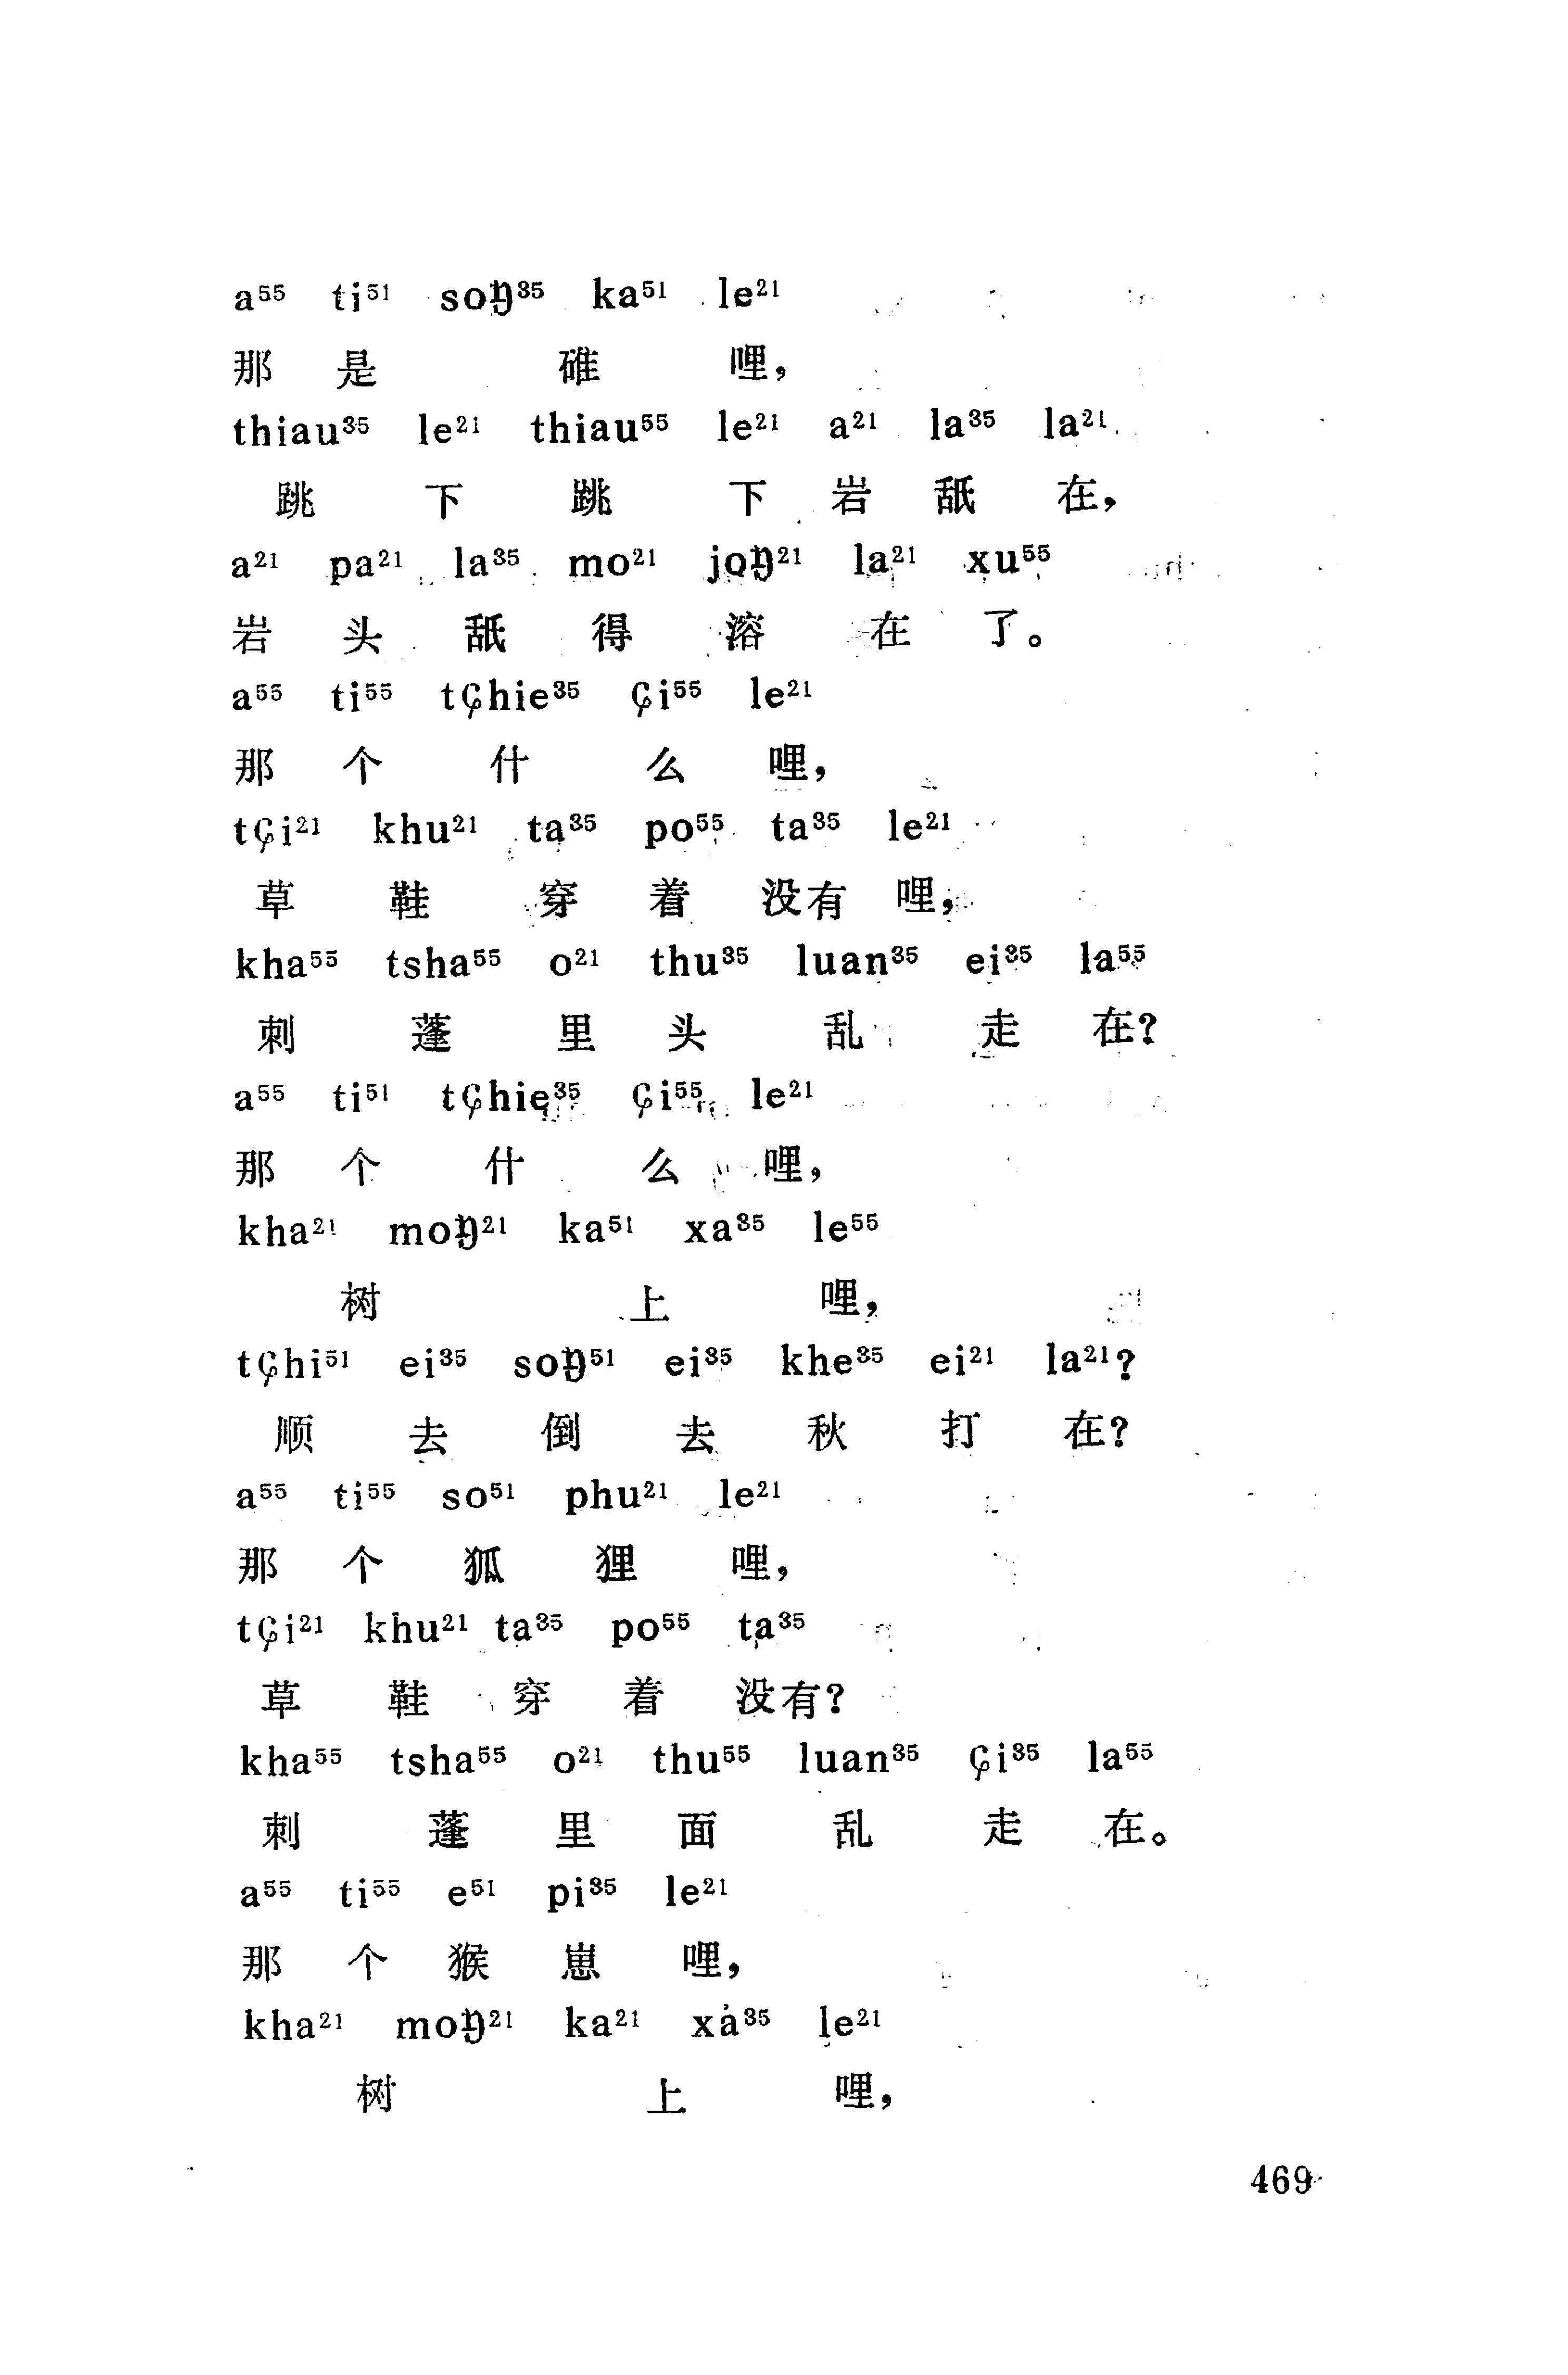 a⁵⁵ ti⁵¹ soŋ³⁵ ka⁵¹ le²¹
那 是 碓 哩，
thiau³⁵ le²¹ thiau⁵⁵ le²¹ a²¹ la³⁵ la²¹
跳 下 跳 下 岩 舐 在，
a²¹ pa²¹ la³⁵ mo²¹ joŋ²¹ la²¹ xu⁵⁵
岩 头 舐 得 溶 在 了。
a⁵⁵ ti⁵⁵ tɕhie³⁵ ɕi⁵⁵ le²¹
那 个 什 么 哩，
tɕi²¹ khu²¹ ta³⁵ po⁵⁵ ta³⁵ le²¹
草 鞋 穿 着 没有 哩，
kha⁵⁵ tsha⁵⁵ o²¹ thu³⁵ luan³⁵ ei³⁵ la⁵⁵
刺 蓬 里 头 乱 走 在？
a⁵⁵ ti⁵¹ tɕhie³⁵ ɕi⁵⁵ le²¹
那 个 什 么 哩，
kha²¹ moŋ²¹ ka⁵¹ xa³⁵ le⁵⁵
树 上 哩，
tɕhi⁵¹ ei³⁵ soŋ⁵¹ ei³⁵ khe³⁵ ei²¹ la²¹?
顺 去 倒 去 秋 打 在？
a⁵⁵ ti⁵⁵ so⁵¹ phu²¹ le²¹
那 个 狐 狸 哩，
tɕi²¹ khu²¹ ta³⁵ po⁵⁵ ta³⁵
草 鞋 穿 着 没有？
kha⁵⁵ tsha⁵⁵ o²¹ thu⁵⁵ luan³⁵ ɕi³⁵ la⁵⁵
刺 蓬 里 面 乱 走 在。
a⁵⁵ ti⁵⁵ e⁵¹ pi³⁵ le²¹
那 个 猴 崽 哩，
kha²¹ moŋ²¹ ka²¹ xa³⁵ le²¹
树 上 哩，
469